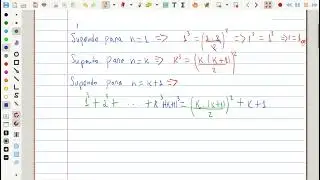 1
Suponho para n=1 => 1³ = (2·1/2)² => 1² = 1² => 1=1
Suponto para n=k => K³ = (K·(K+1)/2)²
Suponho para n=k+1 =>
1³ + 2³ + ... + k³ + (k+1)³ = (K·(K+1)/2)² + K+1